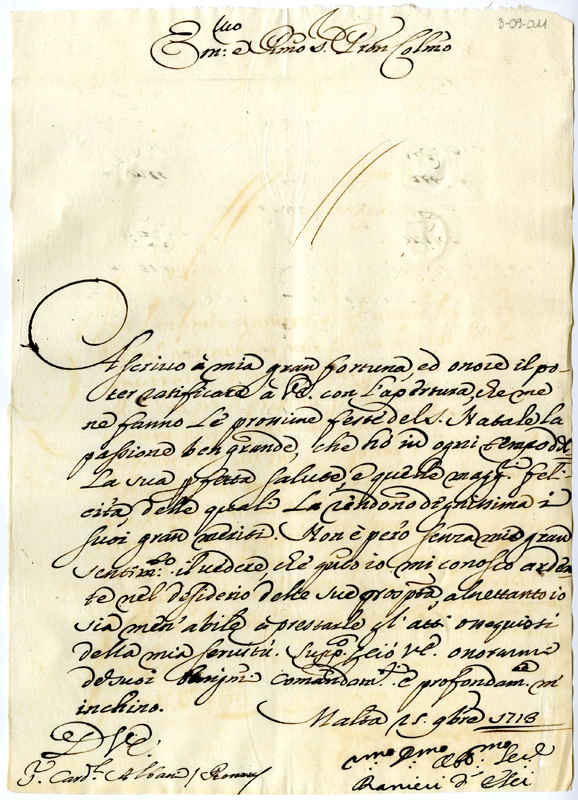 3-09-011
Em: e Rmo S. Pron Colmo
Ascrivo à mia gran fortuna, ed onore il po-
ter ratificare à V.E. con l'apertura, che me
ne fanno le prossime feste del S. Natale la
passione ben grande, che hò in ogni tempo del
la sua pfetta salute, e quelle magg. feli-
cità, delle quali La rendono dignissima i
suoi gran meriti. Non è però senza mio gran
sentimto. il vedere, che quto io mi conosco arden
te nel desiderio delle sue prosptà, altrettanto io
sia men' abile à prestarle gl' atti ossequiosi
della mia servitù. Suppco perciò V.E. onorarme
de suoi benigni comandamti. e profondamte. m'
inchino.
Malta 25. 9bre 1713
D.V.E.
S. Cardl. Albani / Roma
Umo Dmo Obmo Serre
Ranieri d' Elci